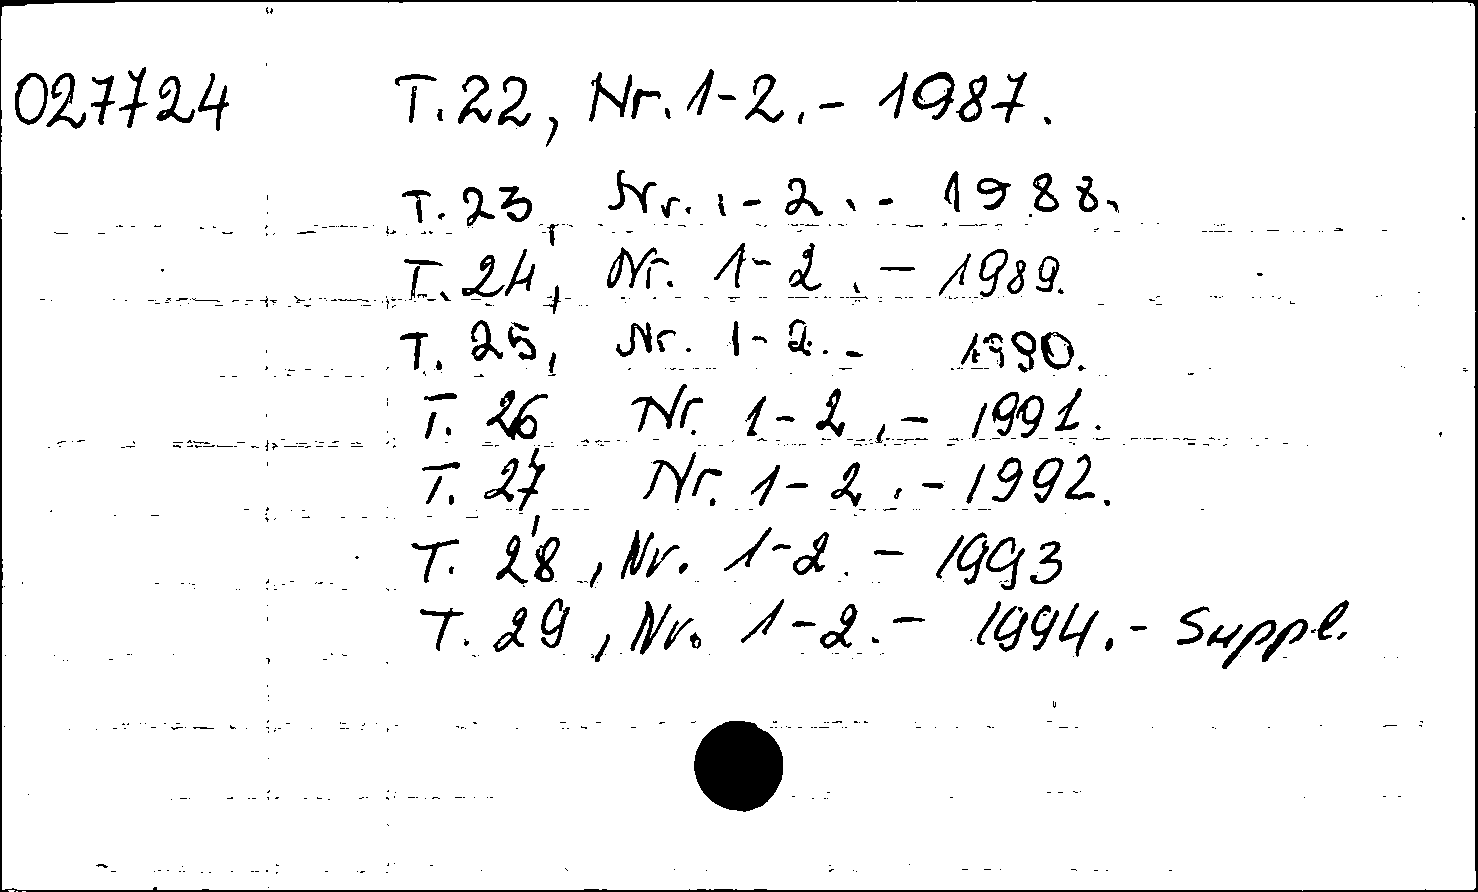 027724 T. 22, Nr. 1-2. - 1987.
T. 23, Nr. 1-2. - 1988.
T. 24, Nr. 1-2. - 1989.
T. 25, Nr. 1-2. - 1990.
T. 26, Nr. 1-2. - 1991.
T. 27, Nr. 1-2. - 1992.
T. 28, Nr. 1-2. - 1993
T. 29, Nr. 1-2. - 1994. - Suppl.